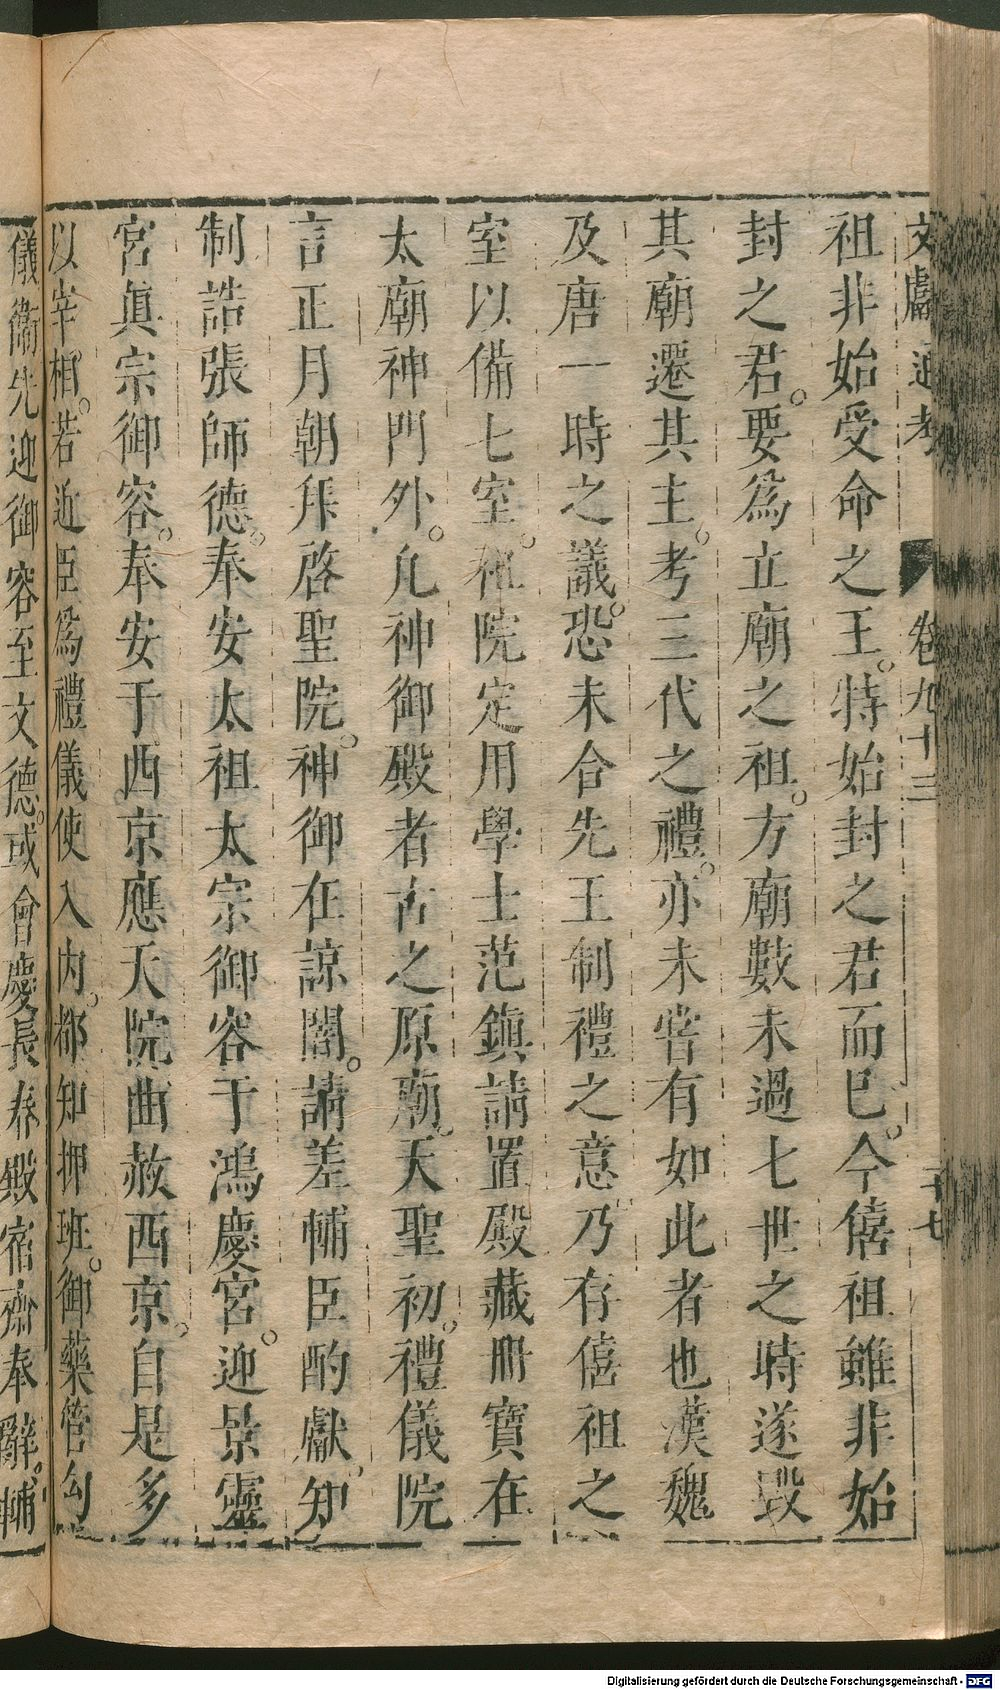 文獻通考 卷九十三 二十七
祖非始受命之王。特始封之君而已。今僖祖雖非始
封之君。要為立廟之祖。方廟數未過七世之時遂毀
其廟遷其主。考三代之禮。亦未嘗有如此者也漢魏
及唐一時之議。恐未合先王制禮之意。乃存僖祖之
室以備七室。祖院定用學士范鎮請置殿藏冊寶在
太廟神門外。凡神御殿者古之原廟。天聖初。禮儀院
言正月朝拜啓聖院。神御在諒闇。請差輔臣酌獻。知
制誥張師德。奉安太祖太宗御容于鴻慶宮。迎景靈
宮眞宗御容。奉安于西京應天院曲赦西京。自是多
以宰相。若近臣爲禮儀使入內。都知押班。御藥管勾
儀衞先迎御容至文德。或會慶長春殿宿齋奉辭。輔
Digitalisierung gefördert durch die Deutsche Forschungsgemeinschaft - DFG